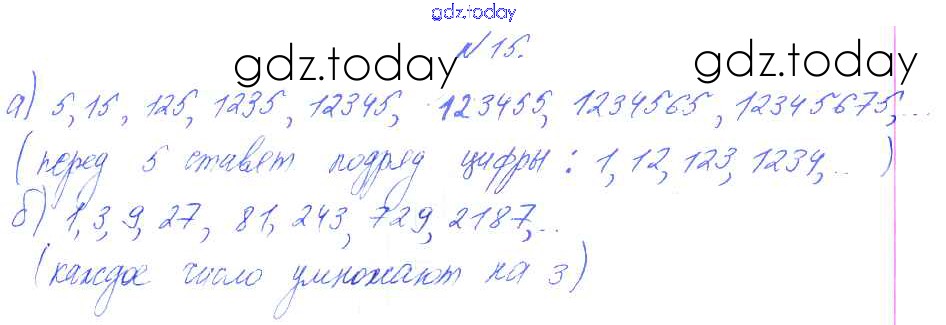 gdz.today
N 15.
gdz.today gdz.today
а) 5, 15, 125, 1235, 12345, 123455, 1234565, 12345675,...
(перед 5 ставят подряд цифры: 1, 12, 123, 1234,...)
б) 1, 3, 9, 27, 81, 243, 729, 2187,...
(каждое число умножают на 3)